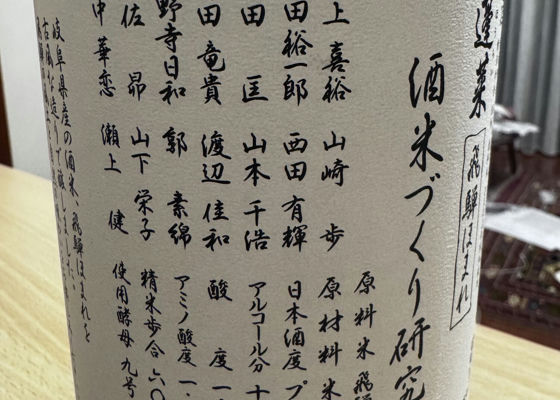 蓬莱
飛騨ほまれ
酒米づくり研究
上喜裕 山崎 歩
田裕一郎 西田有輝
田 匡 山本千浩
田竜貴 渡辺佳和
野寺日和 郭 素綿
佐 昴 山下栄子
中華恋 瀬上 健
原料米 飛騨
原材料 米
日本酒度 プ
アルコール分 十
酸 度 一.
アミノ酸度 一.
精米歩合 六〇
使用酵母 九号
岐阜県産の酒米、飛騨ほまれを